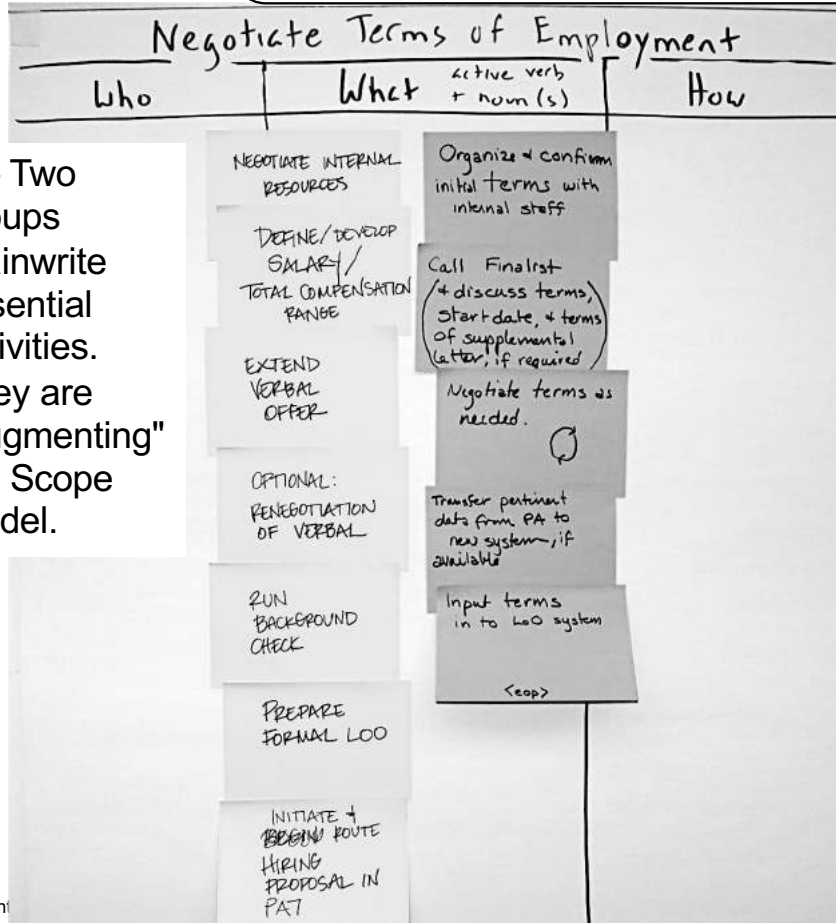 Negotiate Terms of Employment
Who
What
active verb
+ noun(s)
How
Two
inwrite
They are
Scope
NEGOTIATE INTERNAL
RESOURCES
DEFINE/DEVELOP
SALARY/
TOTAL COMPENSATION
RANGE
EXTEND
VERBAL
OFFER
OPTIONAL:
RENEGOTIATION
OF VERBAL
RUN
BACKGROUND
CHECK
PREPARE
FORMAL LOO
INITIATE +
ROUTE
HIRING
PROPOSAL IN
PA7
Organize & confirm
initial terms with
internal staff
Call Finalist
(& discuss terms,
start date, & terms
of supplemental
letter, if required)
Negotiate terms as
needed.
Transfer pertinent
data from PA to
new system, if
available
Input terms
in to LoO system
<eop>